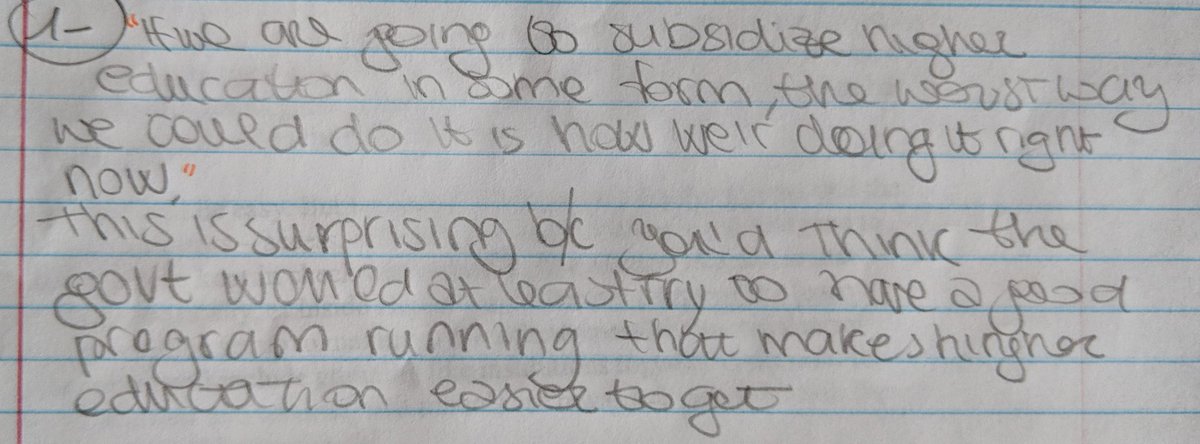 1- "If we are going to subsidize higher
education in some form, the worst way
we could do it is how we're doing it right
now."
This is surprising b/c you'd think the
govt would at least try to have a good
program running that makes hingher
education easier to get